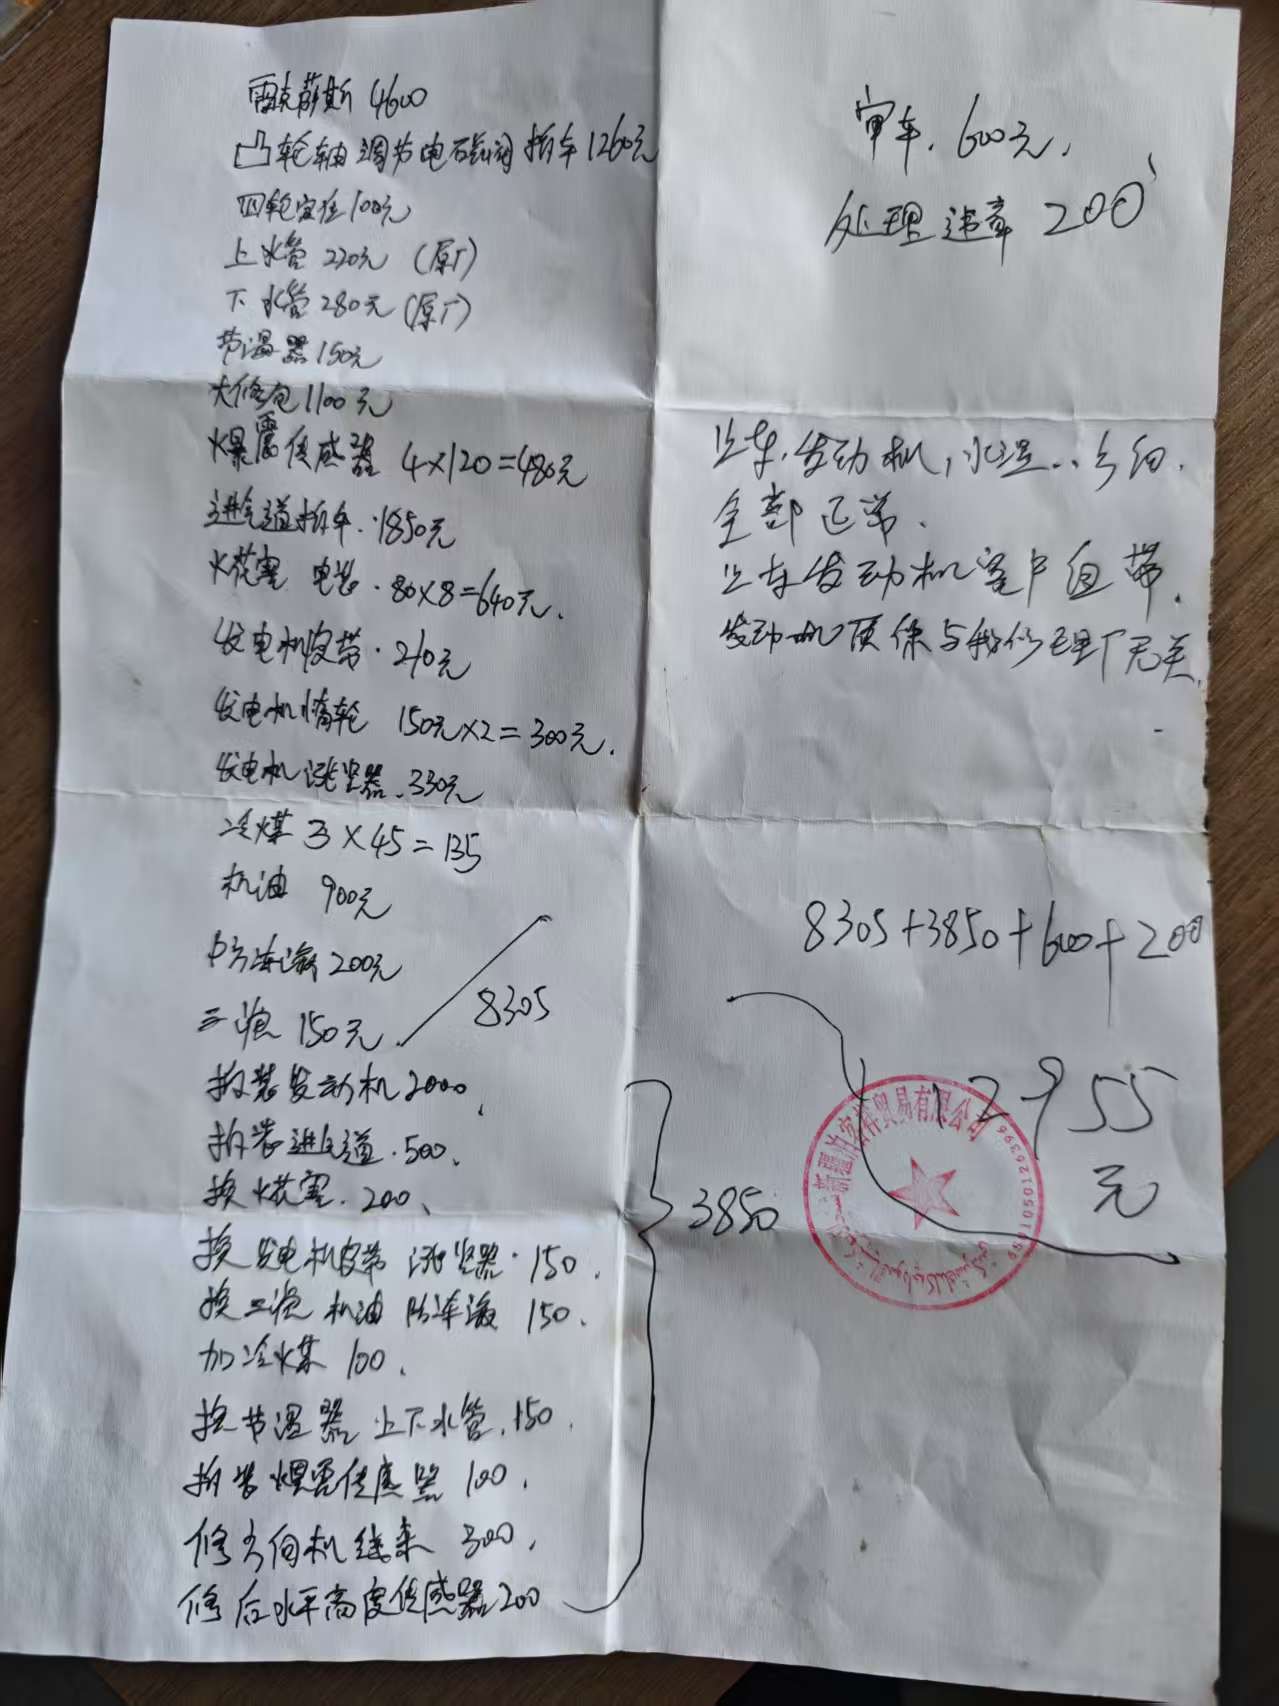 雷克萨斯 4600
凸轮轴调节电磁阀 拆车 1260元
四轮定位100元
上水管 220元 (原厂)
下水管 280元 (原厂)
节温器 150元
大修包 1100元
爆震传感器 4×120=480元
进气道拆车.1850元
火花塞 电装.80×8=640元.
发电机皮带.210元
发电机惰轮 150元×2=300元.
发电机涨紧器.330元
冷媒 3×45=135
机油 900元
防冻液 200元
三滤 150元.
8305
拆装发动机2000.
拆装进气道.500.
换火花塞.200.
换发电机皮带 涨紧器.150.
换三滤 机油 防冻液 150.
加冷媒 100.
换节温器 上下水管.150.
拆装爆震传感器 100.
修方向机线束 300.
修后水平高度传感器200
3850
审车.600元.
处理违章 200
此车.发动机,水温..方向.
全部正常.
此车发动机客户自带.
发动机质保与我修理厂无关.
8305+3850+600+200
12955
元
贸易有限公司